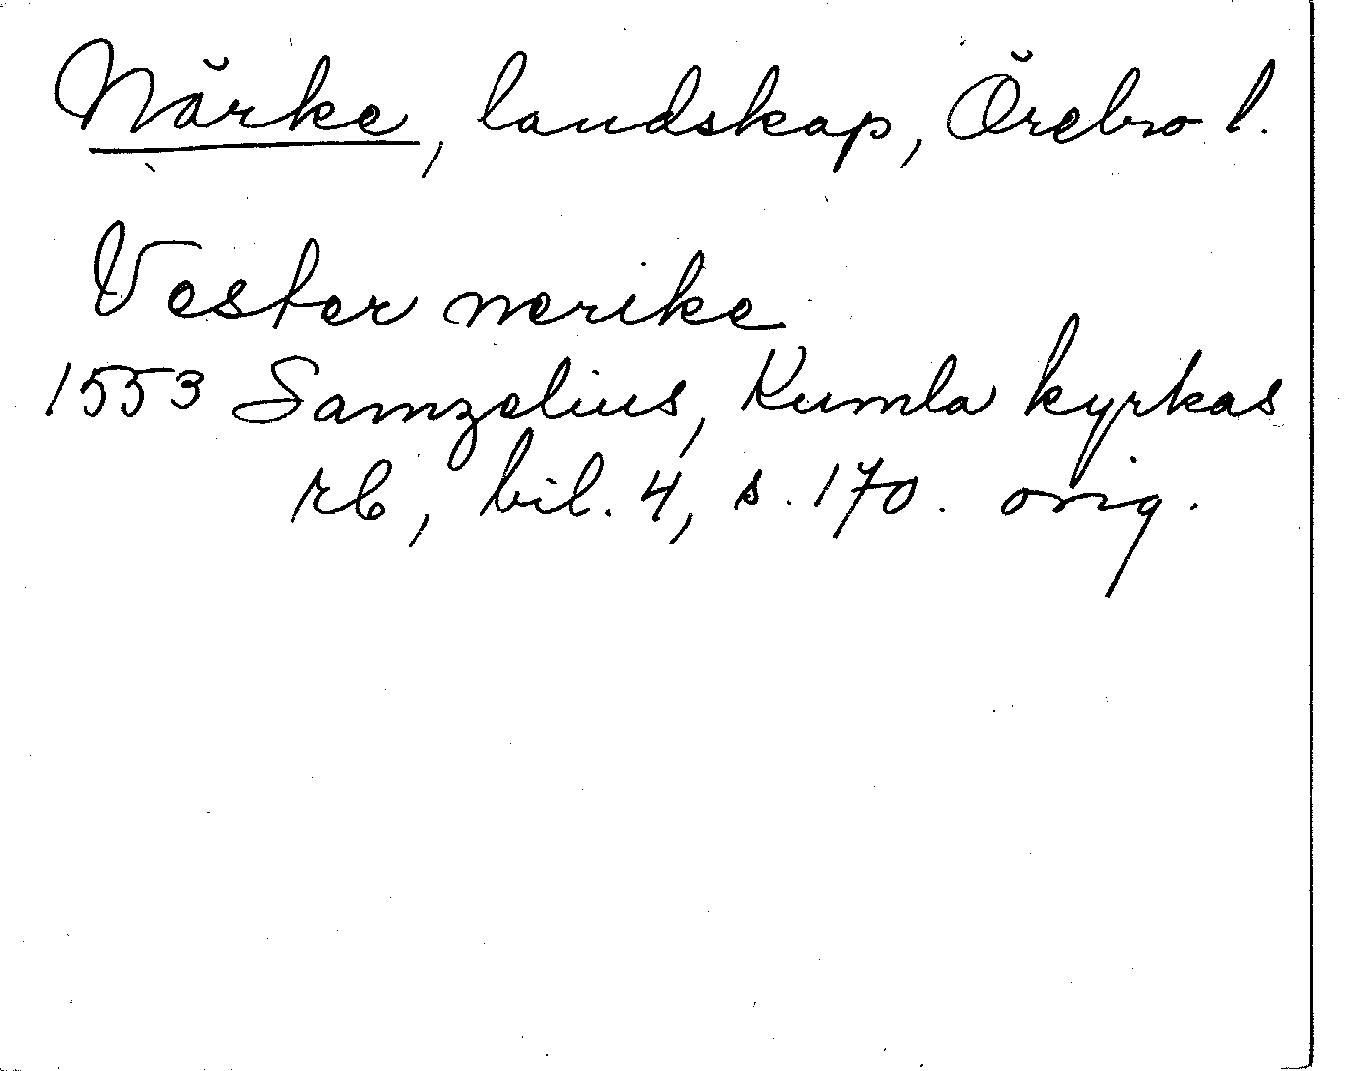 Närke, landskap, Örebro l.
Vester nerike
1553 Samzelius, Kumla kyrkas
rb, bil. 4, s. 170. orig.